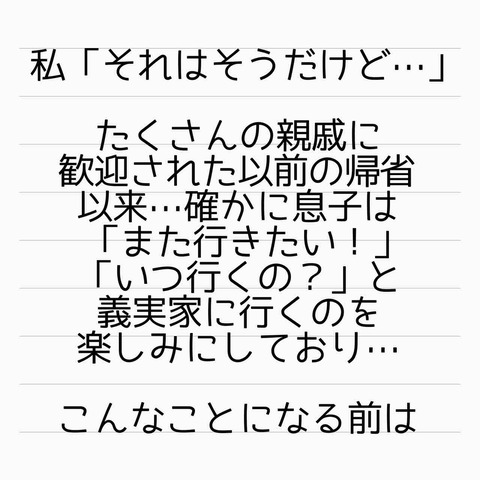 私「それはそうだけど…」
たくさんの親戚に
歓迎された以前の帰省
以来…確かに息子は
「また行きたい！」
「いつ行くの？」と
義実家に行くのを
楽しみにしており…
こんなことになる前は